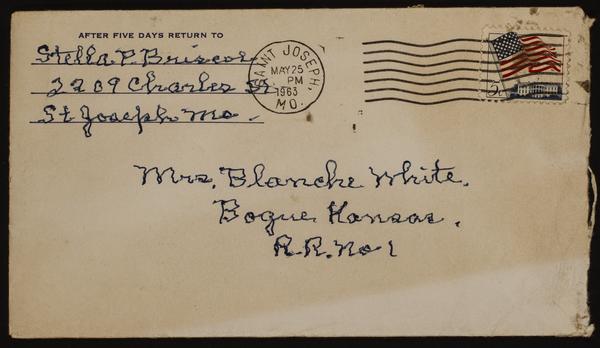 AFTER FIVE DAYS RETURN TO
Stella P. Briscoe
2209 Charles St
St Joseph Mo.
SAINT JOSEPH,
MAY 25
PM
1963
MO.
5c
Mrs. Blanche White.
Bogue Kansas.
R.R. No 1